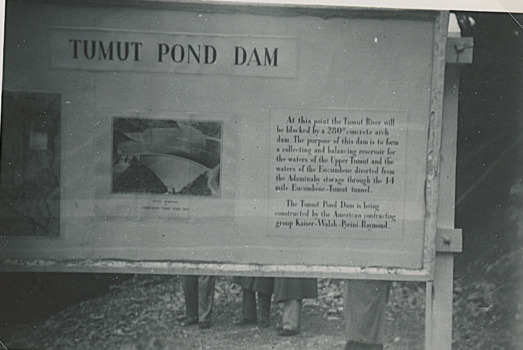 TUMUT POND DAM
At this point the Tumut River will
be blocked by a 280° concrete arch
dam. The purpose of this dam is to form
a collecting and balancing reservoir for
the waters of the Upper Tumut and the
waters of the Eucumbene diverted from
the Adaminaby storage through the 14
mile Eucumbene-Tumut tunnel.
The Tumut Pond Dam is being
constructed by the American contracting
group Kaiser-Walsh-Perini-Raymond.
TUMUT POND DAM